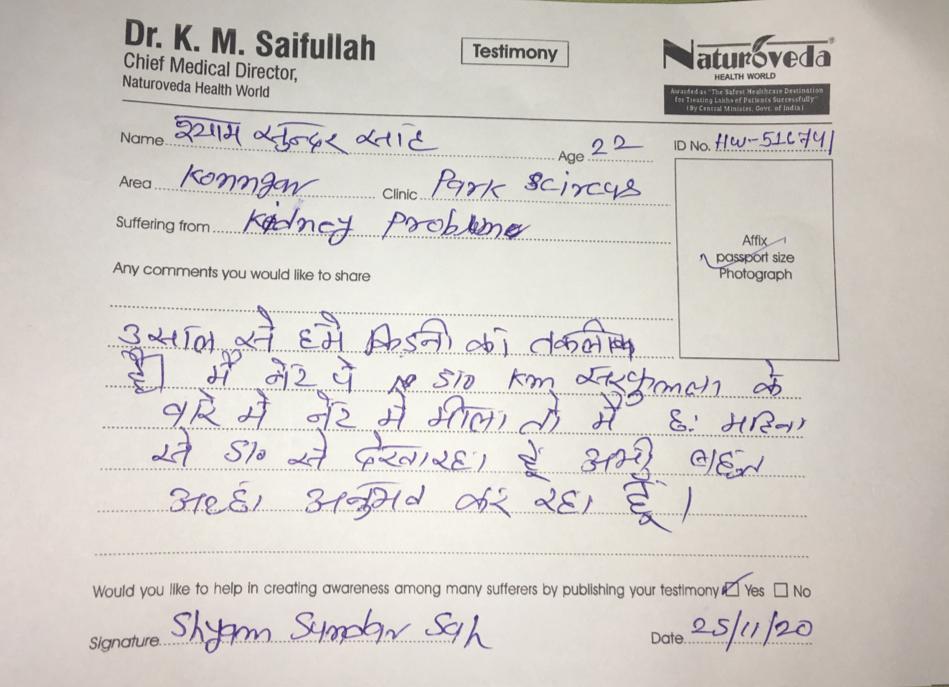 Dr. K. M. Saifullah
Chief Medical Director,
Naturoveda Health World
Testimony
Naturoveda
HEALTH WORLD
Awarded as "The Safest Healthcare Destination
for Treating Lakhs of Patients Successfully"
(By Central Minister, Govt. of India)
Name श्याम सुन्दर साह Age 22 ID No. HW-516741
Area Konngar Clinic Park Scircus
Suffering from Kidney Probleme
Affix
passport size
Photograph
Any comments you would like to share
3 साल से हमे किडनी का तकलीफ
है। मैं नेट पे डा० KM के
वारे मे नेट मे मीला तो मैं छः महिना
से डा० से देखा रहा हूँ अभी बहुत
अच्छा अनुभव कर रहा हूँ।
Would you like to help in creating awareness among many sufferers by publishing your testimony Yes No
Signature Shyam Sundar Sah Date 25/11/20